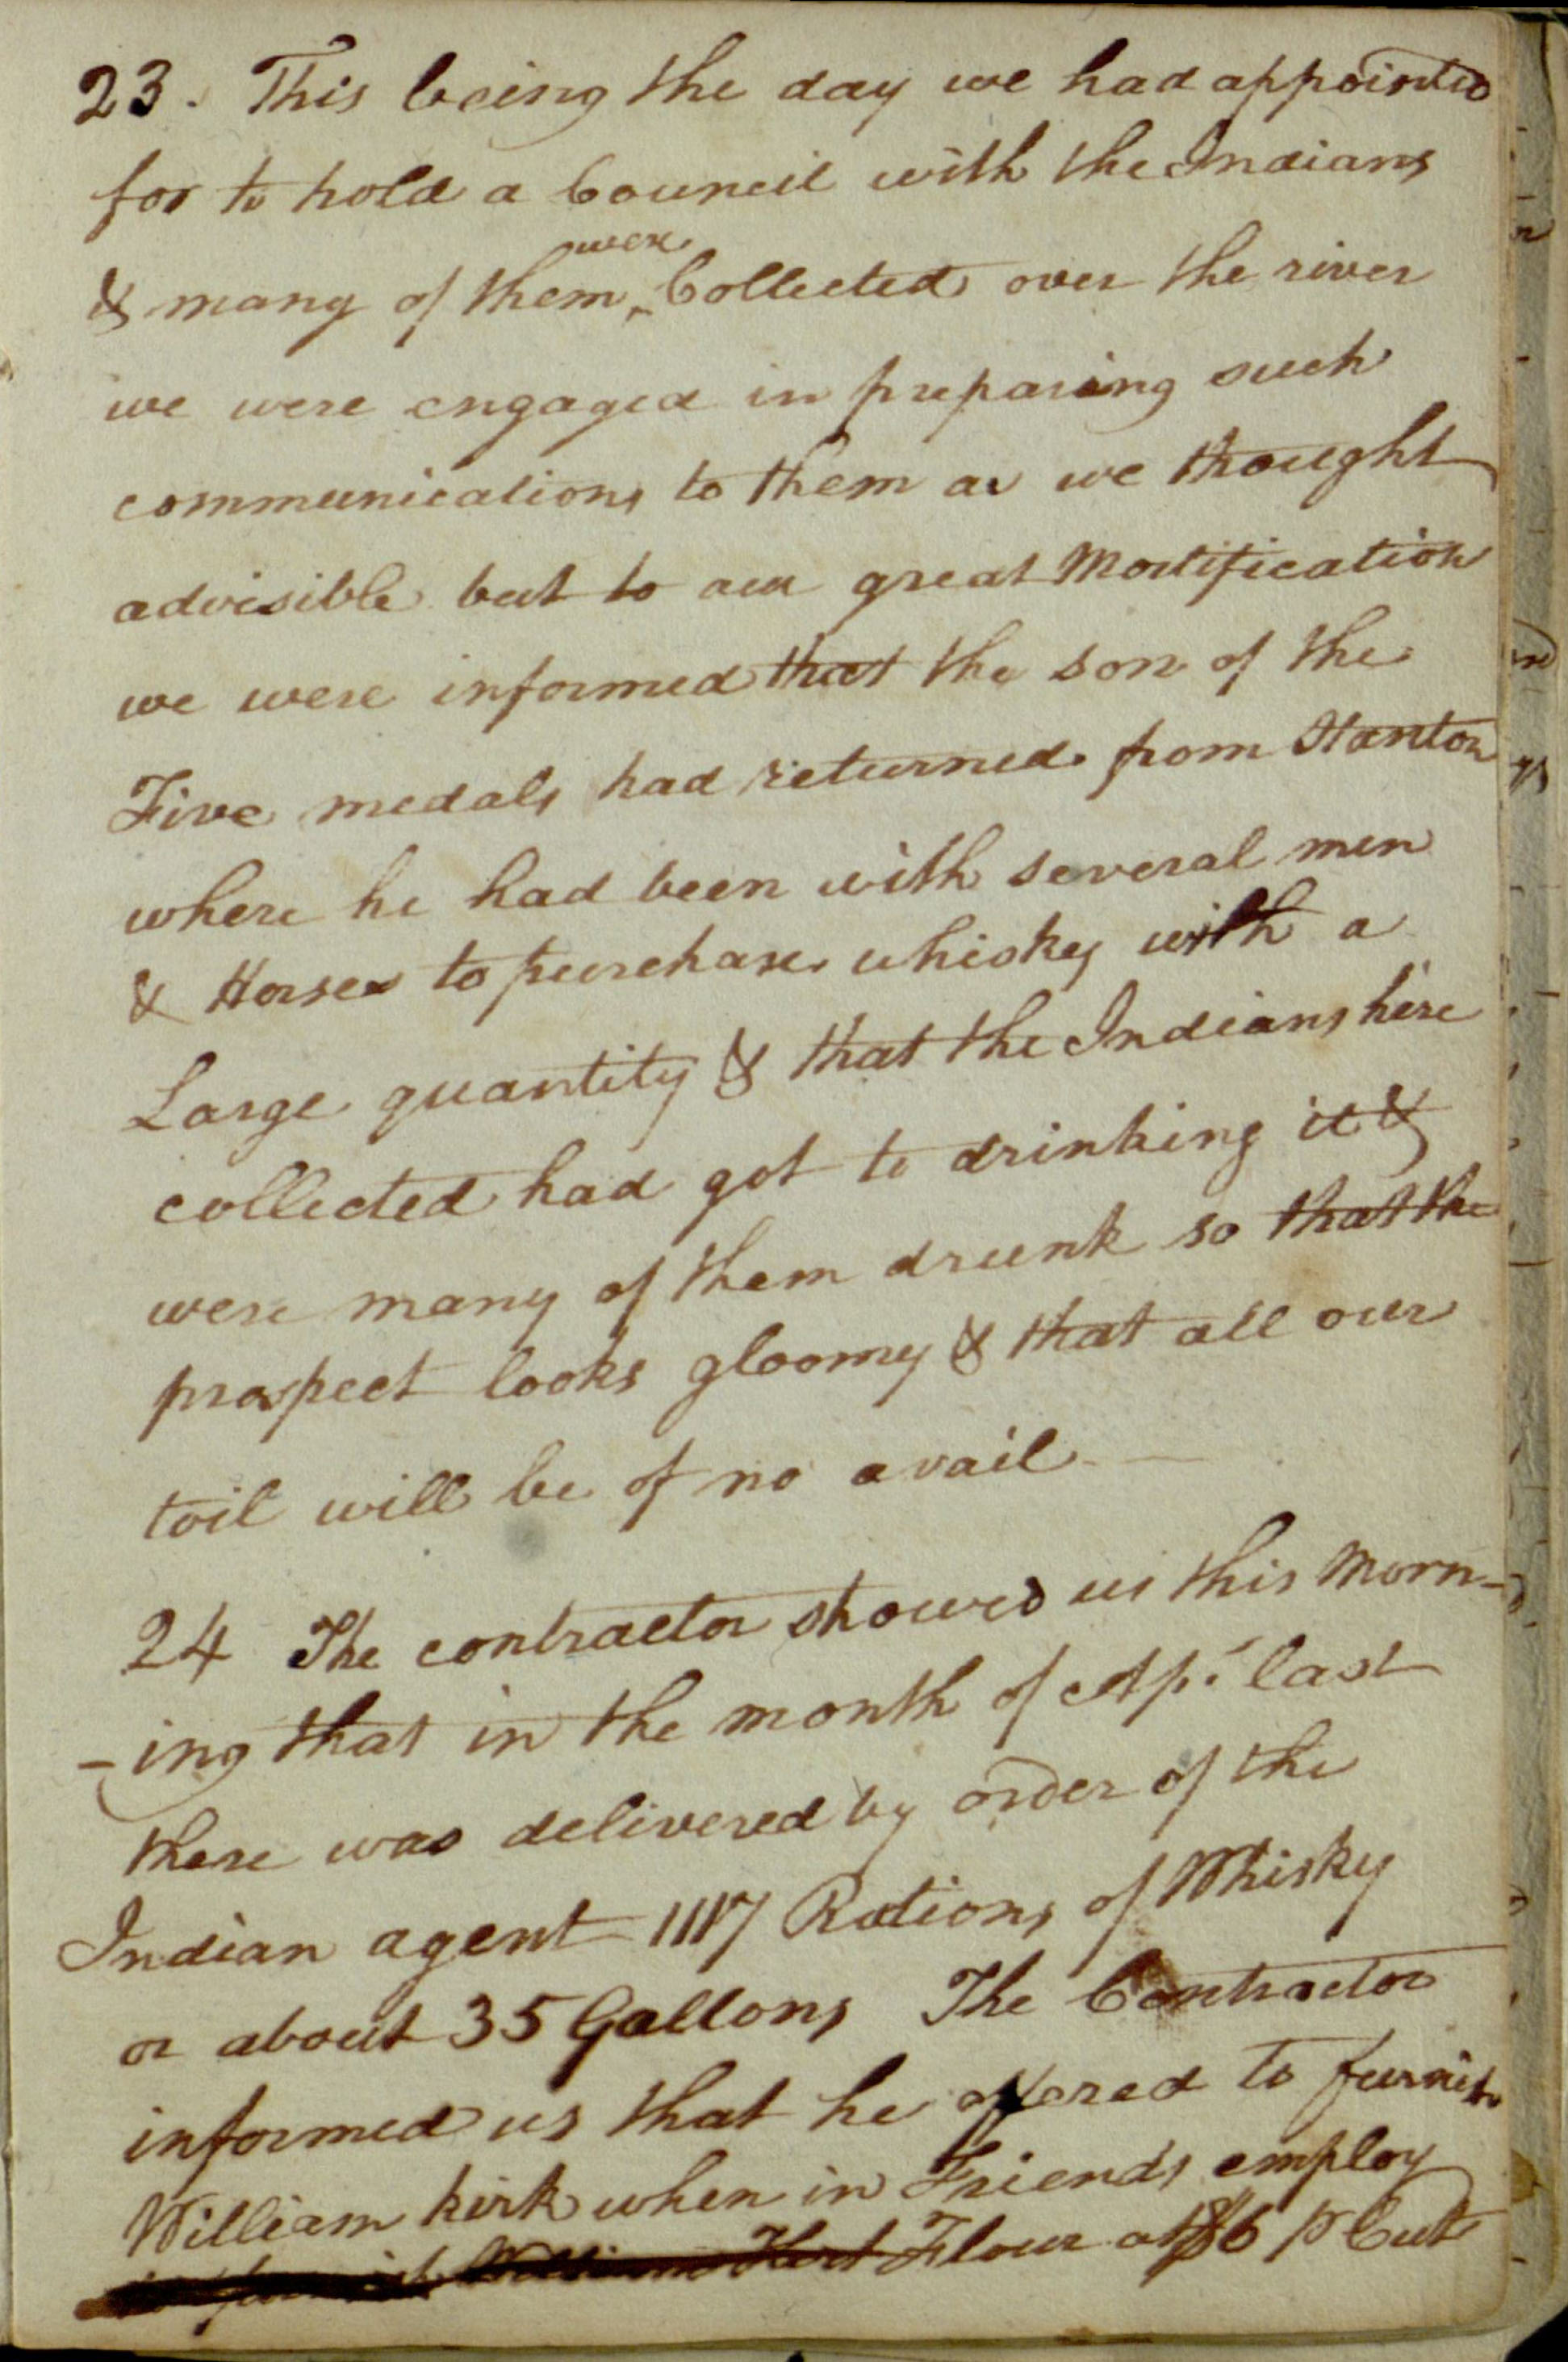 23. This being the day we had appointed
for to hold a Council with the Indians
& many of them were Collected over the river
we were engaged in preparing such
communications to them as we thought
advisible but to our great Mortification
we were informed that the son of the
Five medals had returned from Stanton
where he had been with several men
& Horses to purchase whiskey with a
Large quantity & that the Indians here
collected had got to drinking it &
were many of them drunk so that the
prospect looks gloomy & that all our
toil will be of no avail
24 The contractor showed us this Morn-
-ing that in the month of Apl last
there was delivered by order of the
Indian agent 1117 Rations of Whisky
or about 35 Gallons The Contractor
informed us that he offered to furnish
William kirk when in Friends employ
Flour at $6 P Cut